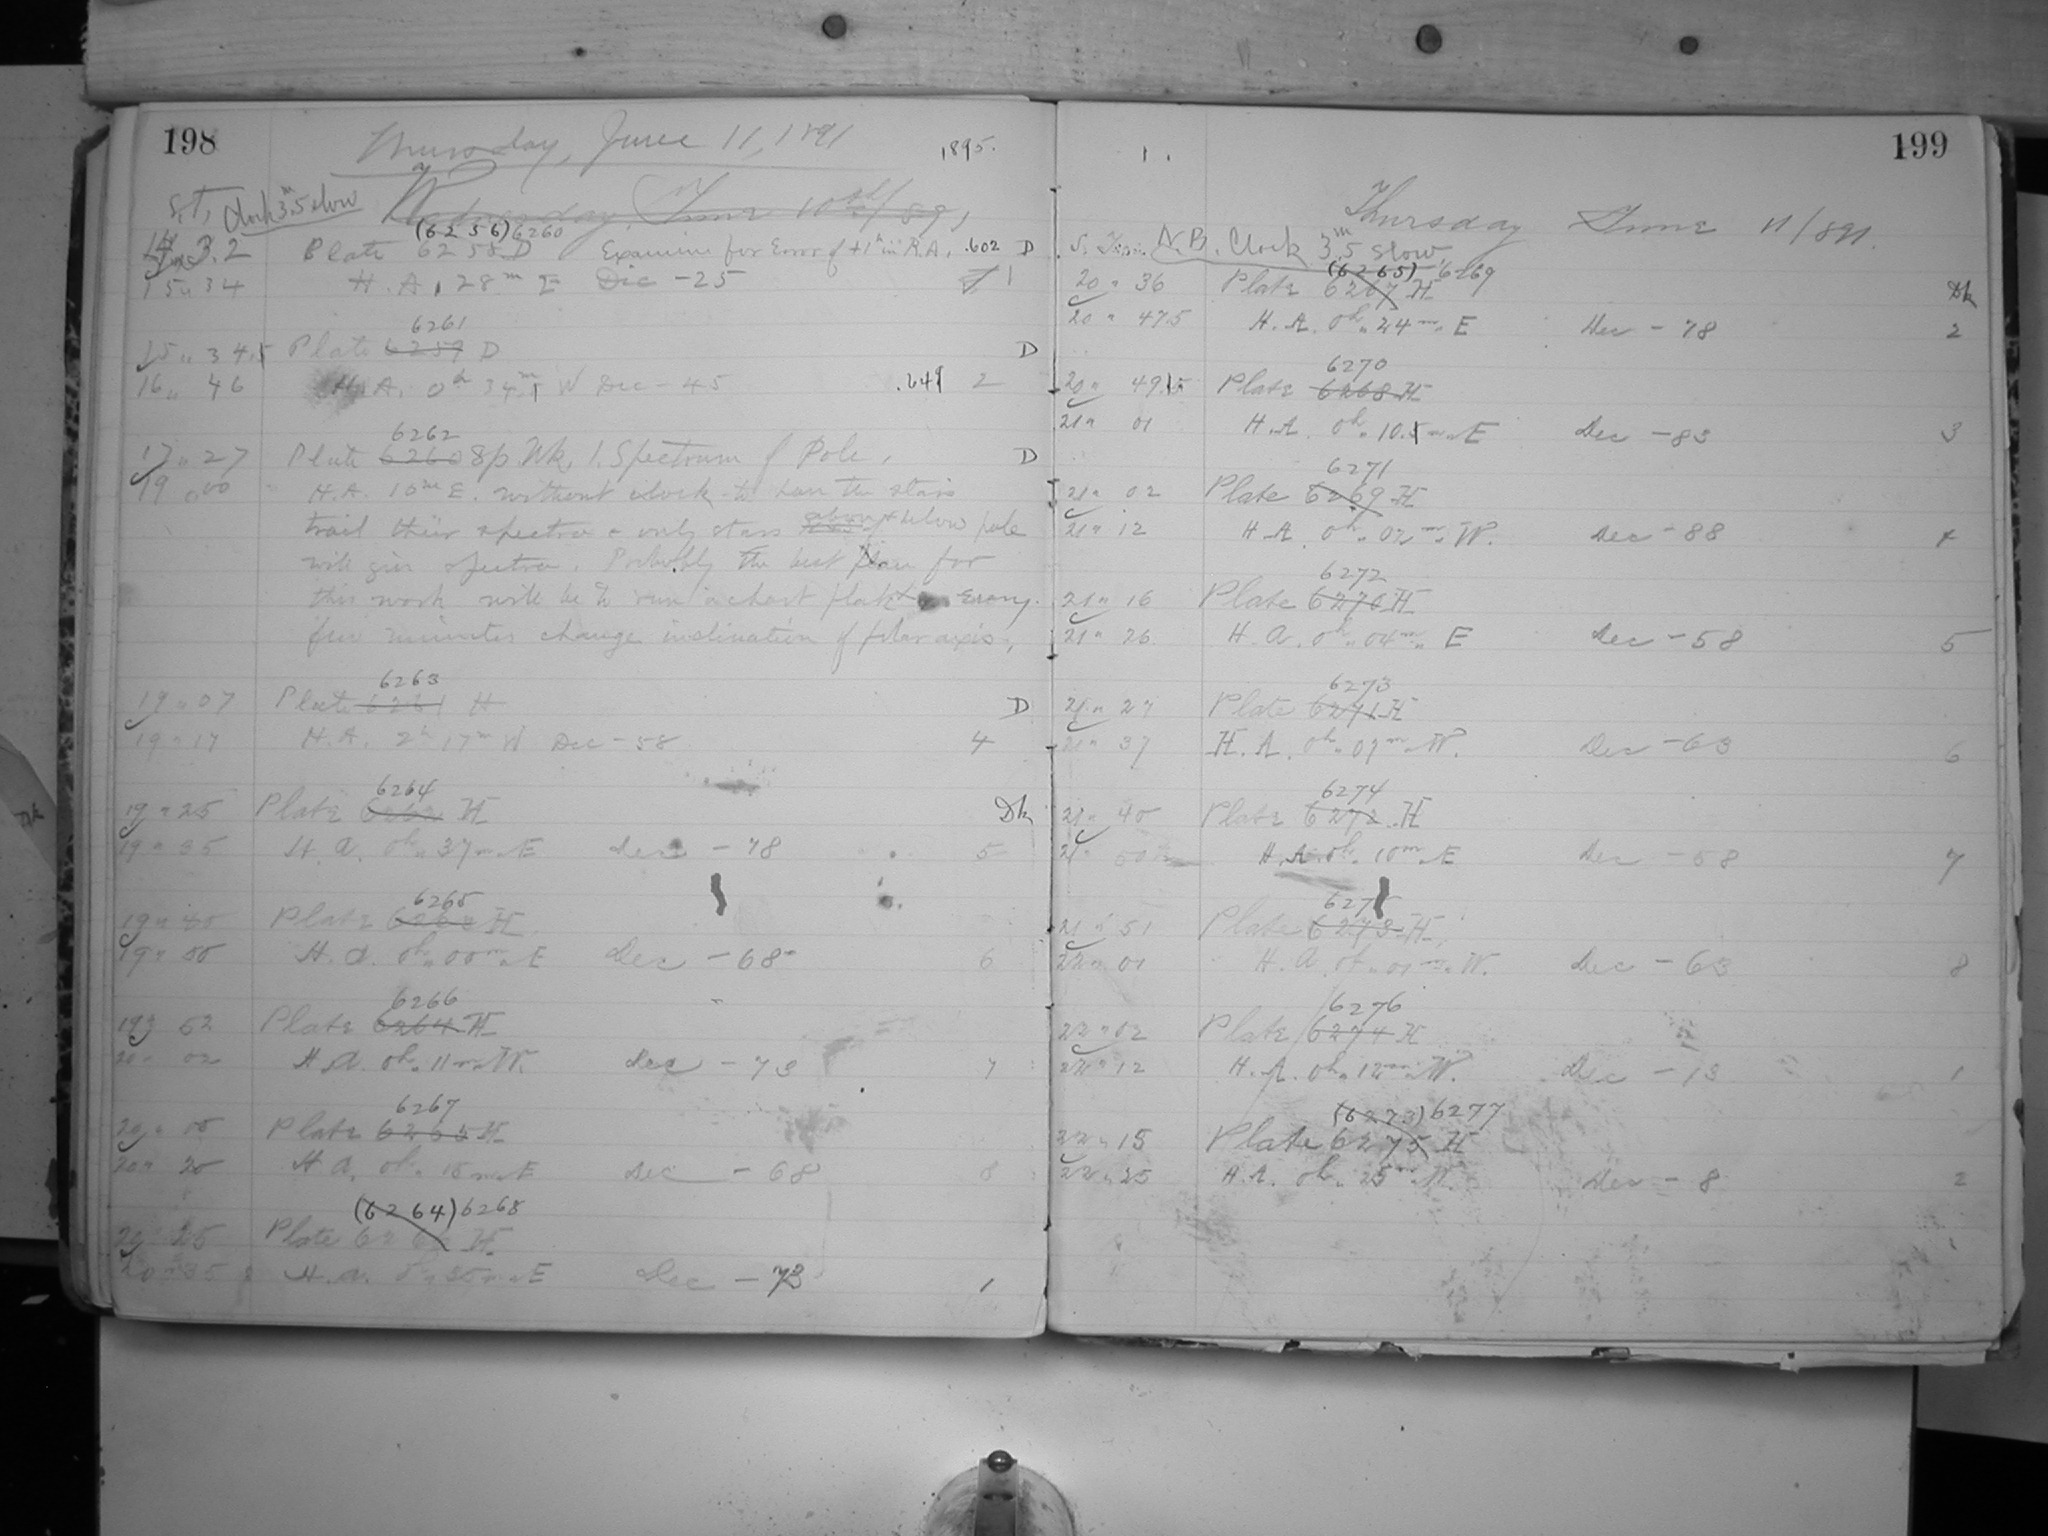 198
Thursday, June 11, 1891
1895.
S.T. Clock 3.5m slow
Wednesday, June 10th/891
(6256) 6260
14 32 Plate 6258 D Examine for Error of +1h in R.A. .602 D
15 " 34 H.A. 28m E Dec -25 1
6261
15 " 34.5 Plate 6259 D D
16 " 46 H.A. 0h 34m W Dec -45 .649 2
6262
17 " 27 Plate 6260 Sp. Wk. 1. Spectrum of Pole. D
19 " 00 H.A. 10m E. without clock to have the stars
trail their spectra & only stars above & below pole
will give spectra. Probably the best plan for
this work will be to run a chart plate & Every
few minutes change inclination of polar axis.
6263
19 " 07 Plate 6261 H D
19 " 17 H.A. 2h 17m W Dec -58 4
6264
19 " 25 Plate 6262 H Dk
19 " 35 H.A. 0h " 37m " E Dec -78 5
6265
19 " 40 Plate 6263 H
19 " 50 H.A. 0h " 00m " E Dec -68 6
6266
19 52 Plate 6264 H
20 " 02 H.A. 0h " 11m " W. Dec -73 7
6267
20 " Plate 6265 H
20 " 20 H.A. 0h " 15m " E Dec -68 8
(6264) 6268
20 25 Plate 6266 H
20 " 35 H.A. 0h " 35m " E Dec -73 1
1. 199
Thursday June 11/891.
S. Time. N.B. Clock 3.5m slow
(6265) 6269
20 " 36 Plate 6267 H Dk
20 " 47.5 H.A. 0h " 24m " E Dec -78 2
6270
20 " 49.5 Plate 6268 H
21 " 01 H.A. 0h " 10.5m " E Dec -83 3
6271
21 " 02 Plate 6269 H
21 " 12 H.A. 0h " 07m " W. Dec -88 4
6272
21 " 16 Plate 6270 H
21 " 26 H.A. 0h " 04m " E Dec -58 5
6273
21 " 27 Plate 6271 H
21 " 37 H.A. 0h " 07m " W. Dec -63 6
6274
21 " 40 Plate 6272 H
21 " 50 H.A. 0h " 10m " E Dec -58 7
6275
21 " 51 Plate 6273 H
22 " 01 H.A. 0h " 01m " W. Dec -63 8
6276
22 " 02 Plate 6274 H
22 " 12 H.A. 0h " 12m " W. Dec -13 1
(6273) 6277
22 " 15 Plate 6275 H
22 " 25 H.A. 0h " 25m " W. Dec -8 2